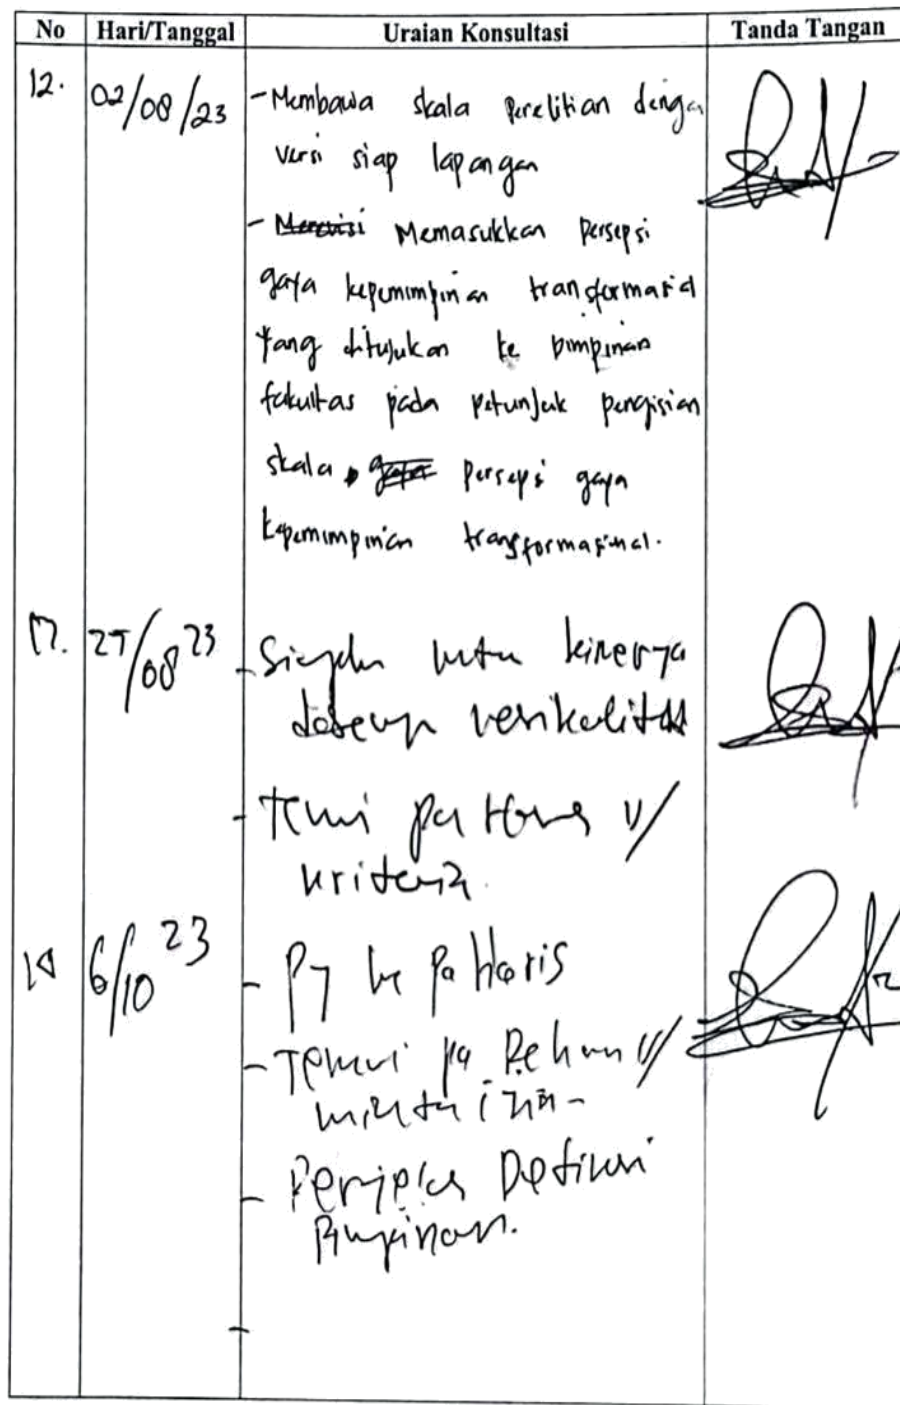 No Hari/Tanggal Uraian Konsultasi Tanda Tangan
12. 02/08/23 - Membawa skala penelitian dengan
versi siap lapangan
- Merevisi Memasukkan persepsi
gaya kepemimpinan transformasional
yang ditujukan ke pimpinan
fakultas pada petunjuk pengisian
skala persepsi gaya
kepemimpinan transformasional.
/08 23 - kinerja
dosennya
- Temui u/
kriteria.
6/10 23 - ke pa Haris
- Temui pa u/
minta izin -
- Perjelas Definisi
Pimpinan.
-